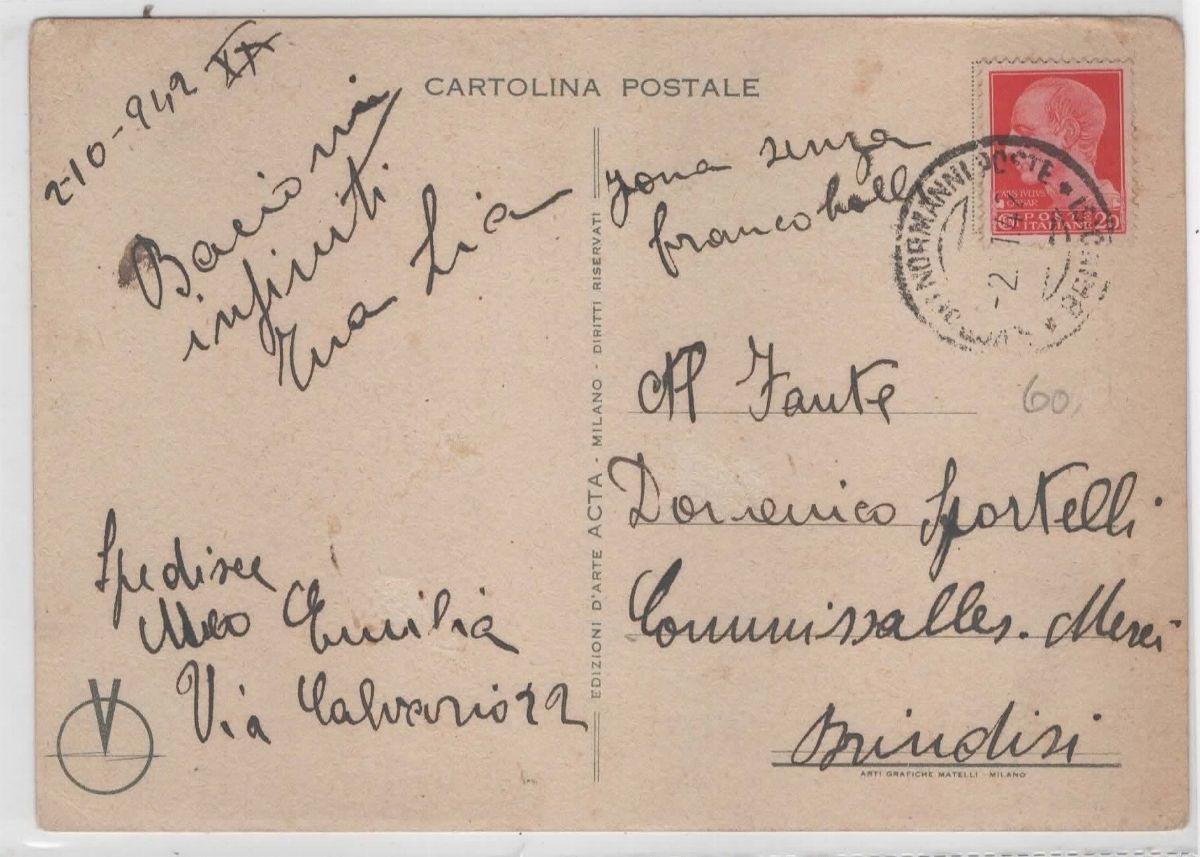 CARTOLINA POSTALE
2-10-942 XX
Bacioni
infiniti
tua Lia
zona senza
francobolli
POSTE ITALIANE 20
NORMANNI POSTE
-2.
60
Al Fante
Domenico Sportelli
Commissalles. Merci
Brindisi
Spedisce
Meo Emilia
Via Calvario 22
V
EDIZIONI D'ARTE ACTA - MILANO - DIRITTI RISERVATI
ARTI GRAFICHE MATELLI - MILANO